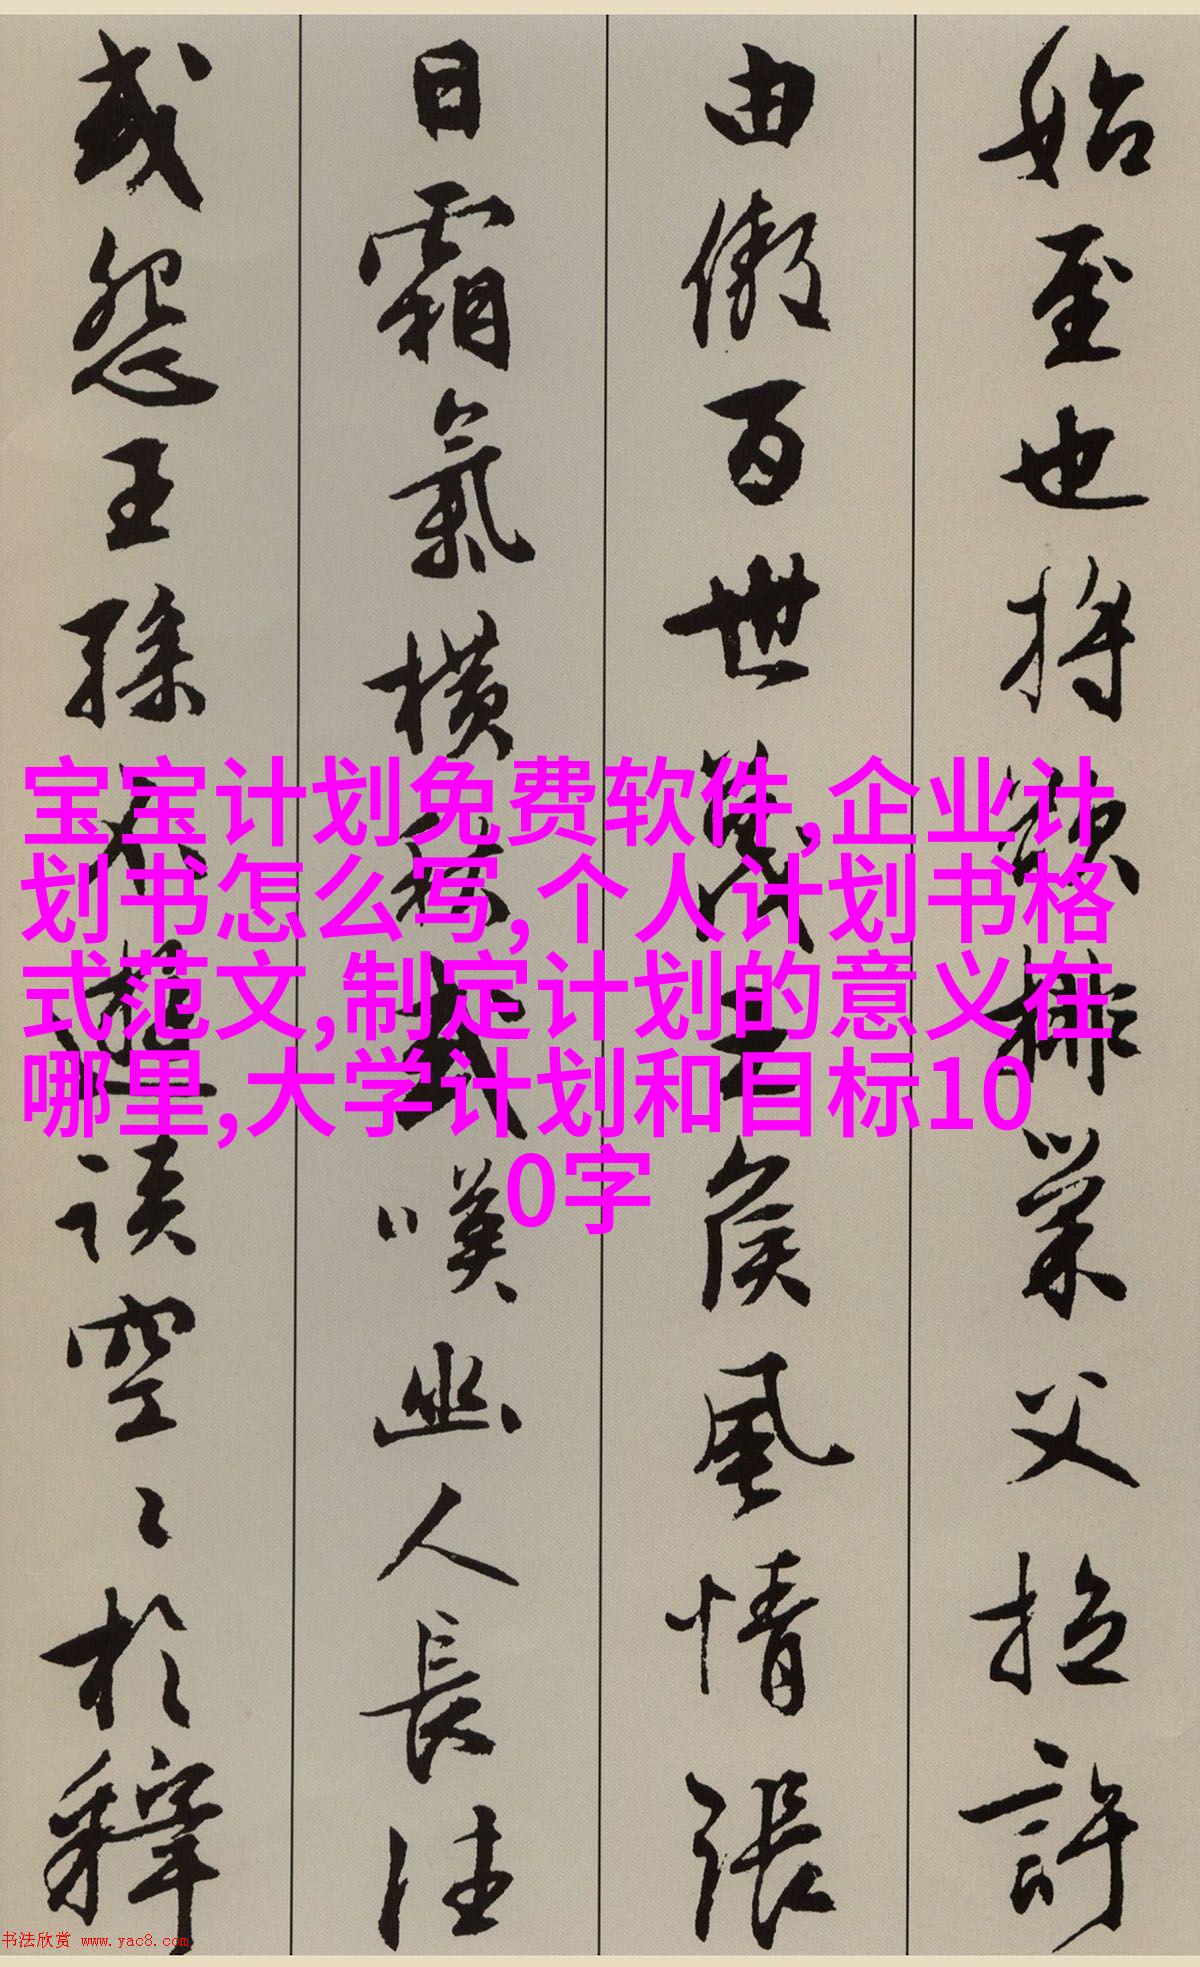 始至也將欲排巢父拉許
由傲百世蔑王侯風情張
日霜氣橫秋或嘆幽人長往
或怨王孫不遊談空〻於釋
宝宝计划免费软件,企业计
划书怎么写,个人计划书格
式范文,制定计划的意义在
哪里,大学计划和目标10
0字
书法欣赏 www.yac8.com